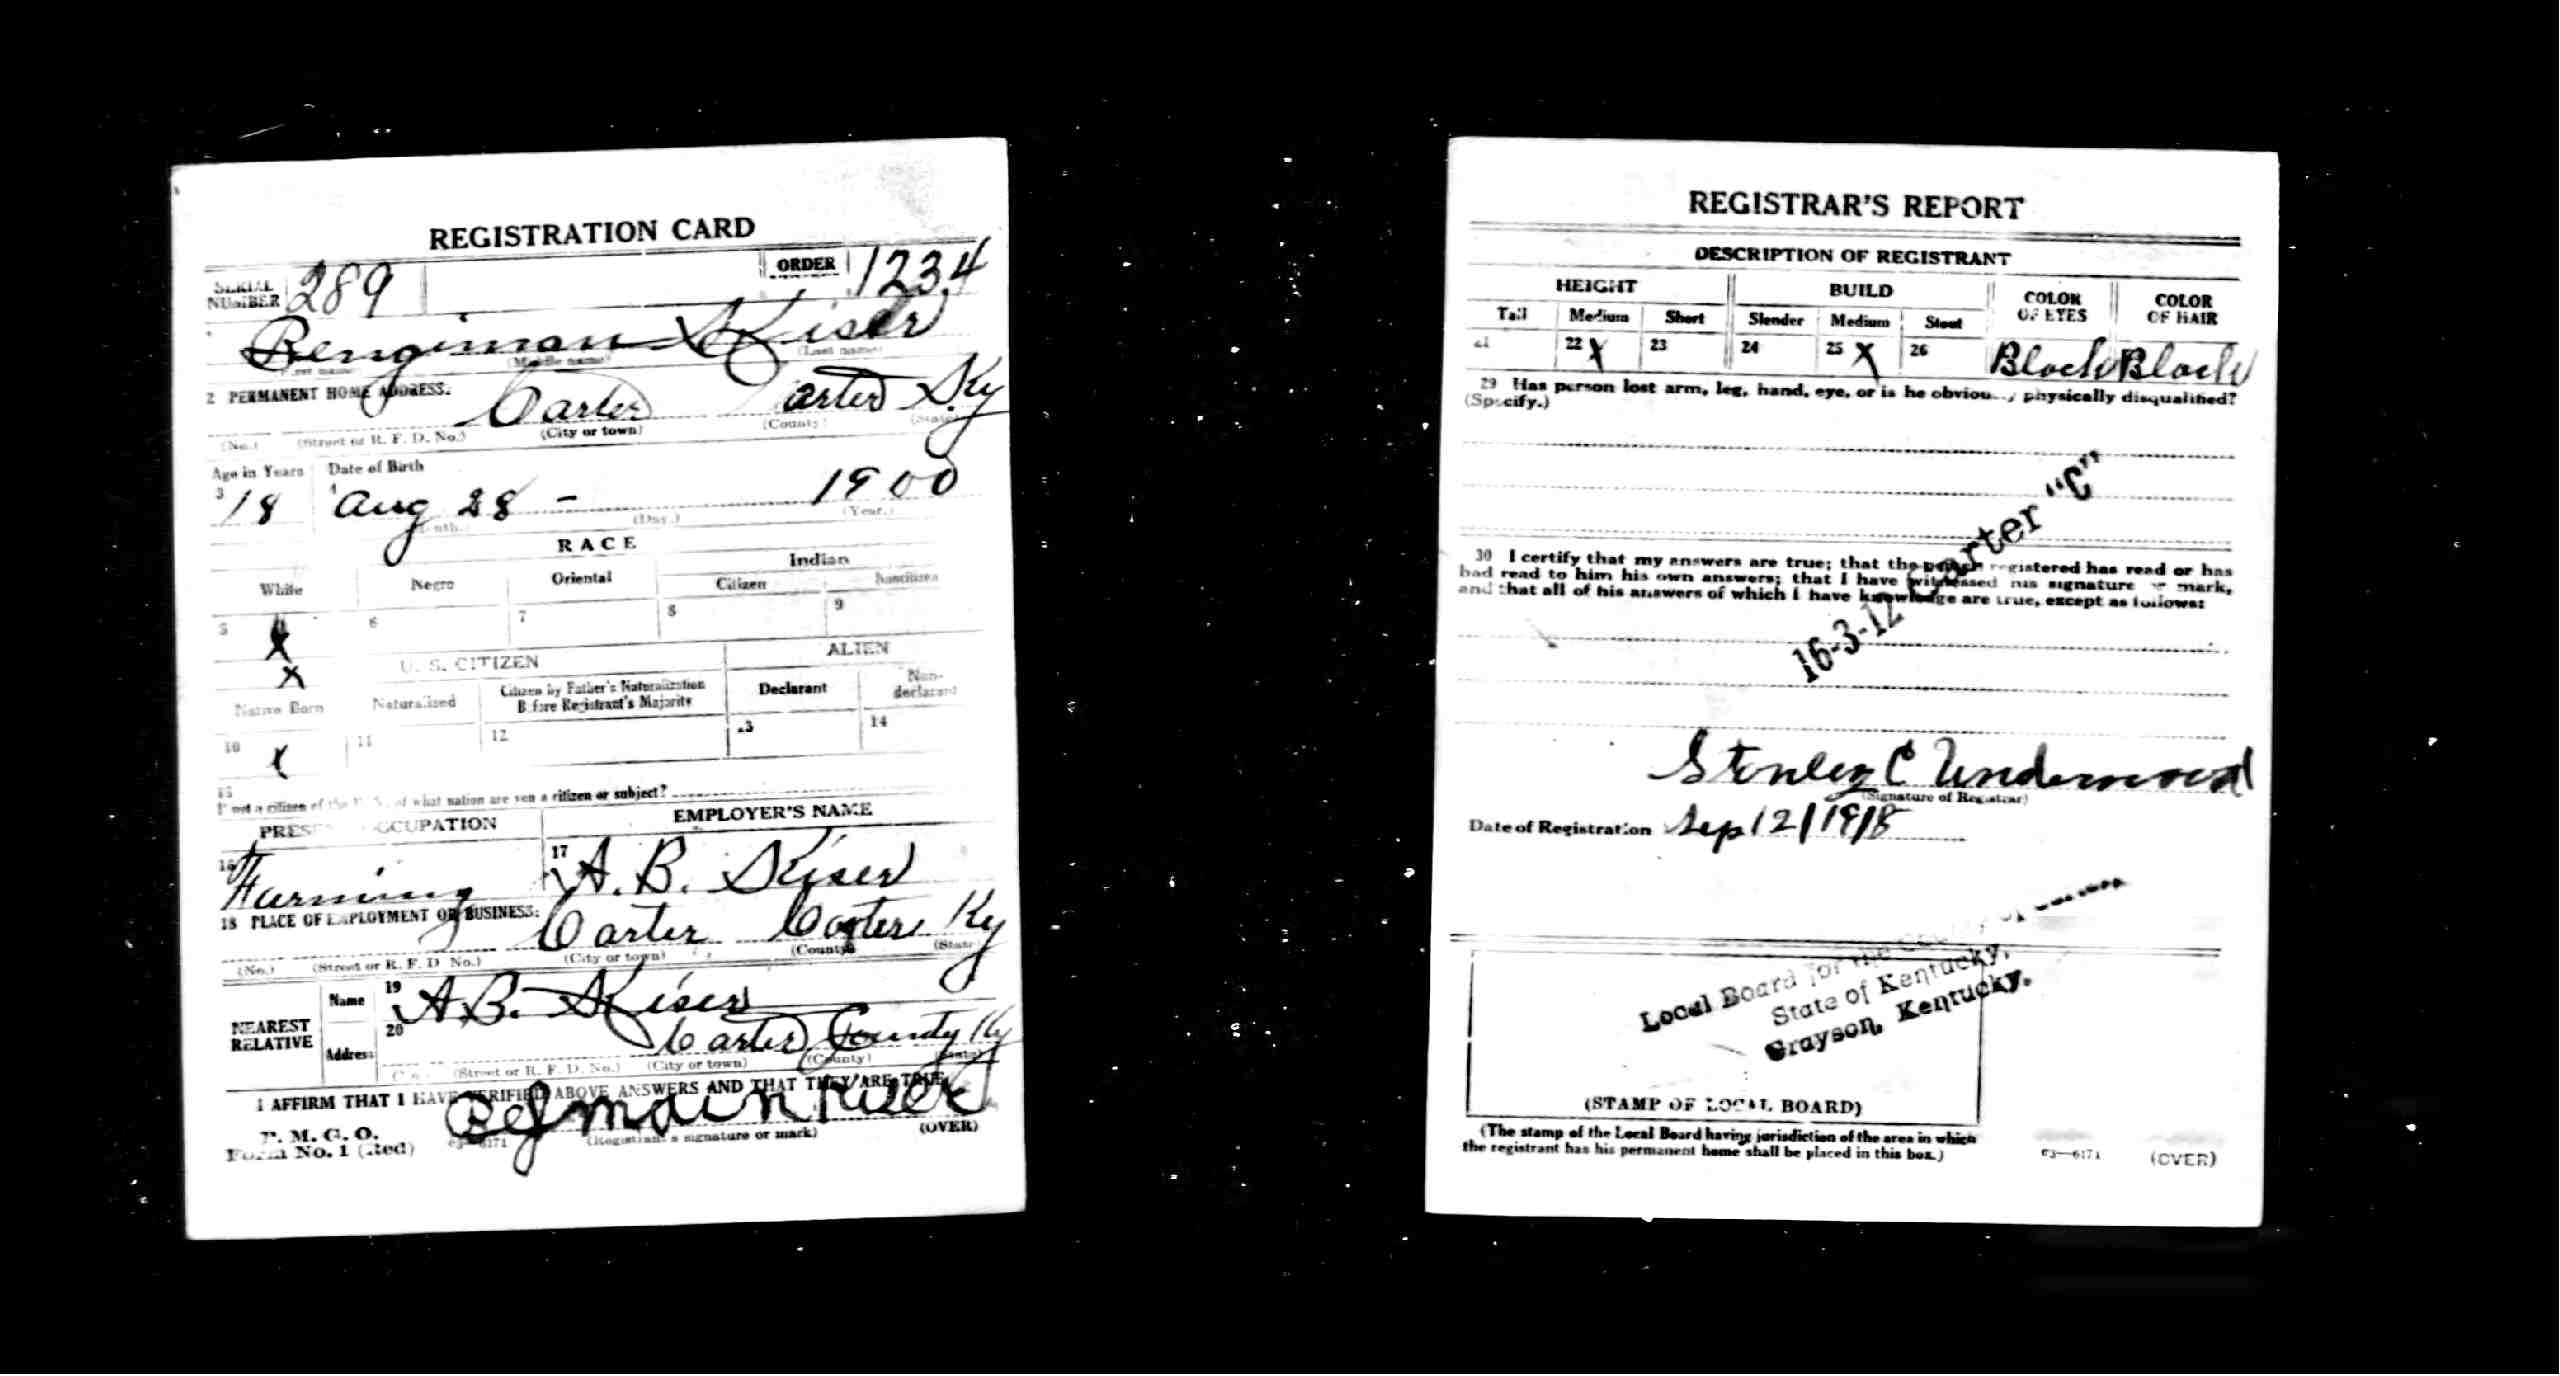 REGISTRATION CARD
SERIAL NUMBER 289 ORDER 1234
Bengiman Kiser
(Middle name) (Last name)
2 PERMANENT HOME ADDRESS:
Carter Carter Ky
(No.) (Street or R. F. D. No.) (City or town) (County) (State)
Age in Years Date of Birth
3 18 4 Aug 28 - 1900
(Day.) (Year.)
RACE
White Negro Oriental Indian
Citizen Noncitizen
5 X 6 7 8 9
X
U. S. CITIZEN ALIEN
Native Born Naturalized Citizen by Father's Naturalization Before Registrant's Majority Declarant Non-declarant
10 X 11 12 13 14
15
If not a citizen of the U. S., of what nation are you a citizen or subject?
PRESENT OCCUPATION EMPLOYER'S NAME
16 Farming 17 A. B. Kiser
18 PLACE OF EMPLOYMENT OR BUSINESS:
Carter Carter Ky
(No.) (Street or R. F. D. No.) (City or town) (County) (State)
NEAREST RELATIVE
Name 19 A. B. Kiser
Address 20 Carter County Ky
(Street or R. F. D. No.) (City or town) (County) (State)
I AFFIRM THAT I HAVE VERIFIED ABOVE ANSWERS AND THAT THEY ARE TRUE
P. M. G. O.
Form No. 1 (Red) 03—6171 (Registrant's signature or mark) (OVER)
Kiser
REGISTRAR'S REPORT
DESCRIPTION OF REGISTRANT
HEIGHT BUILD COLOR OF EYES COLOR OF HAIR
Tall Medium Short Slender Medium Stout
21 22 X 23 24 25 X 26 Black Black
29 Has person lost arm, leg, hand, eye, or is he obviously physically disqualified?
(Specify.)
30 I certify that my answers are true; that the person registered has read or has
had read to him his own answers; that I have witnessed his signature or mark,
and that all of his answers of which I have knowledge are true, except as follows:
16-3-12 Carter "C"
Stenley C Underwood
(Signature of Registrar)
Date of Registration Sep 12/1918
Local Board for the County of Carter
State of Kentucky,
Grayson, Kentucky.
(STAMP OF LOCAL BOARD)
(The stamp of the Local Board having jurisdiction of the area in which
the registrant has his permanent home shall be placed in this box.)
03—6171 (OVER)